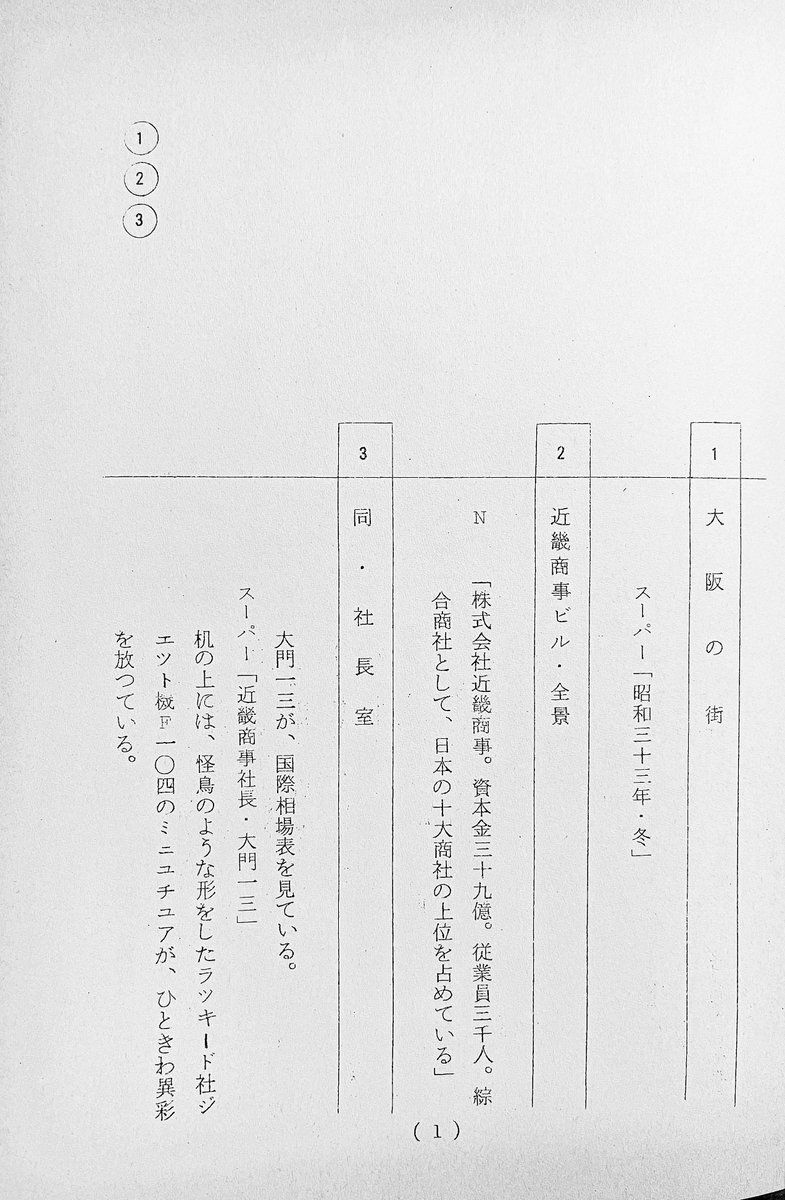 1 大阪の街
スーパー「昭和三十三年・冬」
2 近畿商事ビル・全景
N 「株式会社近畿商事。資本金三十九億。従業員三千人。綜
合商社として、日本の十大商社の上位を占めている」
3 同・社長室
大門一三が、国際相場表を見ている。
スーパー「近畿商事社長・大門一三」
机の上には、怪鳥のような形をしたラツキード社ジ
エツト機F一〇四のミニユチユアが、ひときわ異彩
を放つている。
①
②
③
(1)